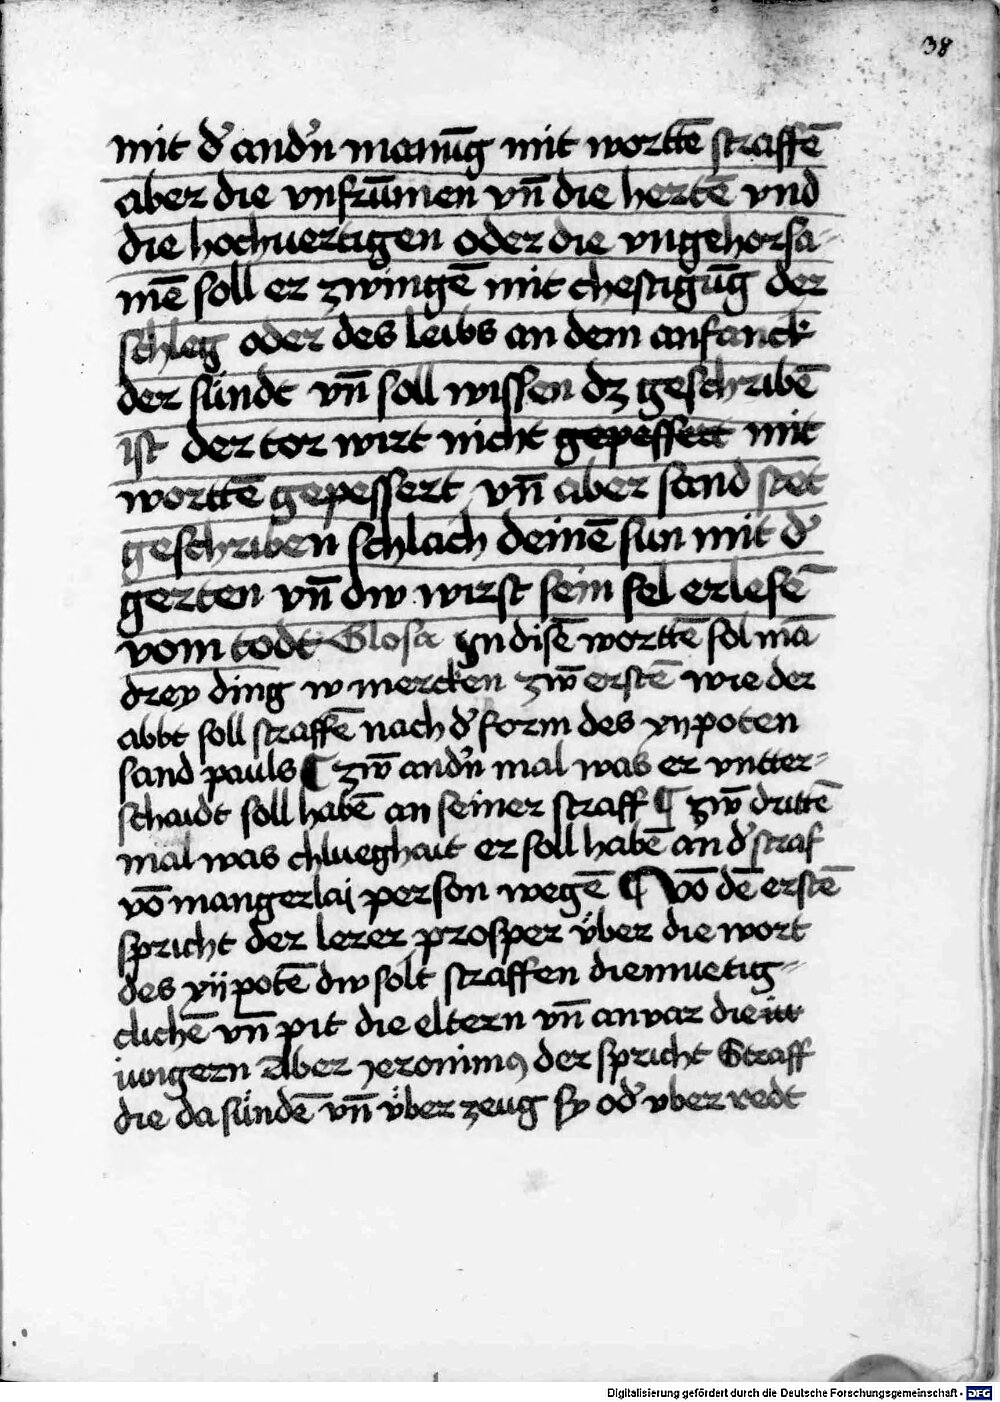 38
mit d' and'n manūg mit worttē straffē
aber die vnfrūmen vn̄ die hertē vnd
die hochuertigen oder die vngehorsa-
mē soll er zwingē mit chestigūg der
schleg oder des leibs an dem anfanck
der sündt vn̄ soll wissen dz geschribē
ist der tor wirt nicht gepeffert mit
worttē gepessert vn̄ aber sand stet
geschriben schlach deinē sun mit d'
gerten vn̄ dw wirst sein sel erlesē
vom todt Glosa In disē worttē sol mā
drey ding w mercken zw̄ erstē wie der
abbt soll straffē nach d' form des xijpoten
sand pauls ¶ zw̄ and'n mal was er vntter-
schaidt soll habē an seiner straff ¶ zw̄ drittē
mal was chlueghait er soll habē an d' straf
vō mangerlai person wegē ¶ Vō dē erstē
spricht der lerer prosper über die wort
des xijpotē dw solt straffen diemuetig-
clichē vn̄ pit die eltern vn̄ anvar die
iungern Aber jeronimꝰ der spricht Straff
die da sündē vn̄ über zeug sy od' vber redt
Digitalisierung gefördert durch die Deutsche Forschungsgemeinschaft - DFG